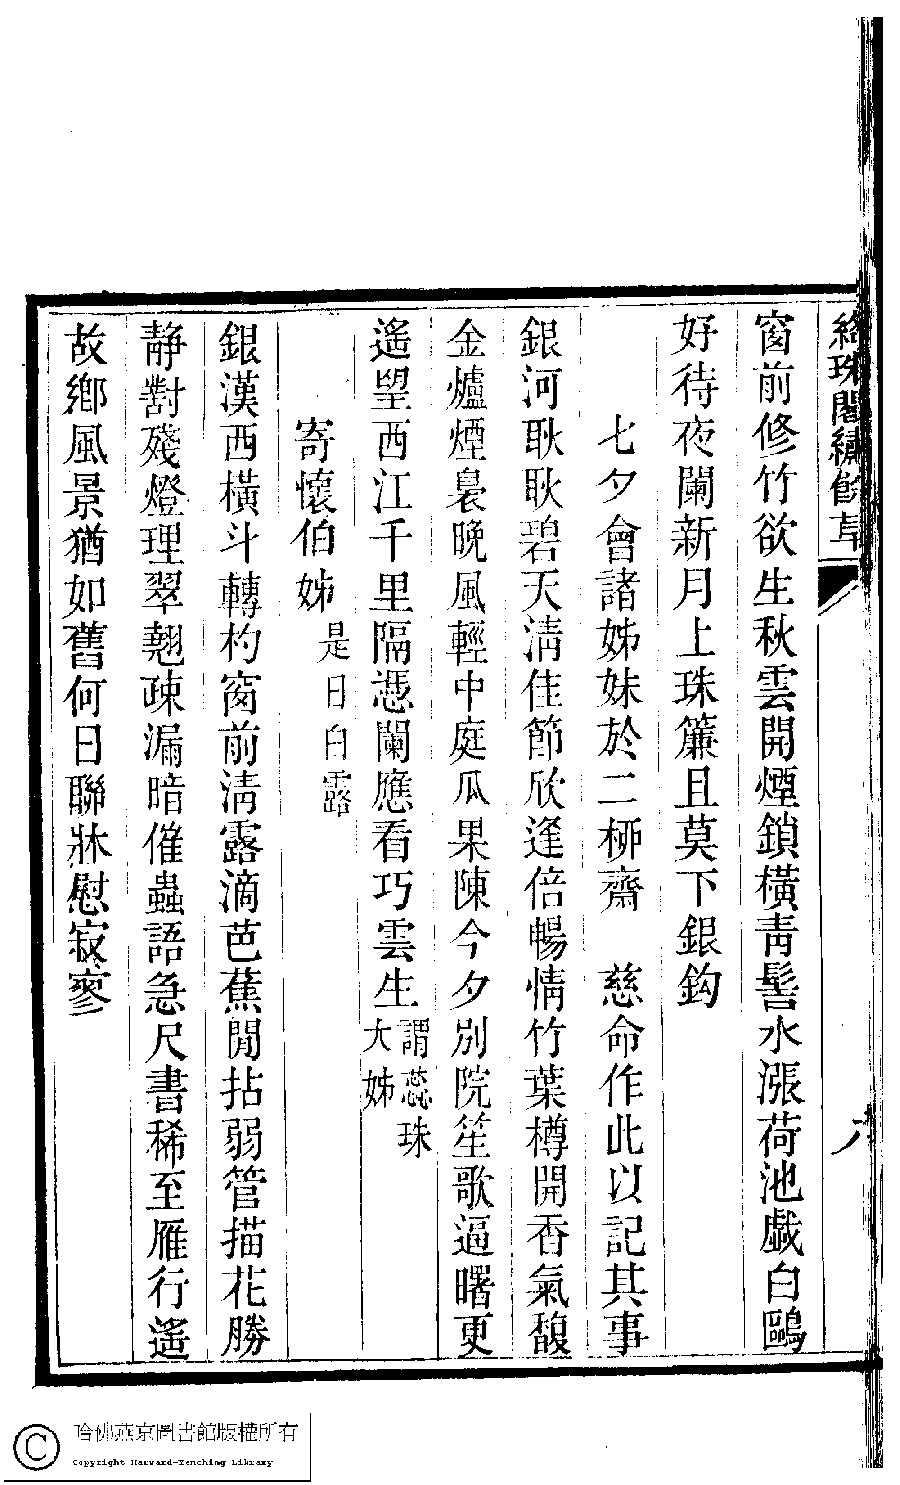 絳珠閣繡餘草
六
窗前修竹欲生秋雲開煙鎖橫青髻水漲荷池戲白鷗
好待夜闌新月上珠簾且莫下銀鈎
七夕會諸姊妹於二柳齋　慈命作此以記其事
銀河耿耿碧天淸佳節欣逢倍暢情竹葉樽開香氣馥
金爐煙裊晚風輕中庭瓜果陳今夕別院笙歌逼曙更
遙望西江千里隔憑闌應看巧雲生謂蕊珠大姊
寄懷伯姊是日白露
銀漢西橫斗轉杓窗前淸露滴芭蕉閒拈弱管描花勝
靜對殘燈理翠翹疎漏暗催蟲語急尺書稀至雁行遙
故鄉風景猶如舊何日聯牀慰寂寥
哈佛燕京圖書館版權所有
Copyright Harvard-Yenching Library